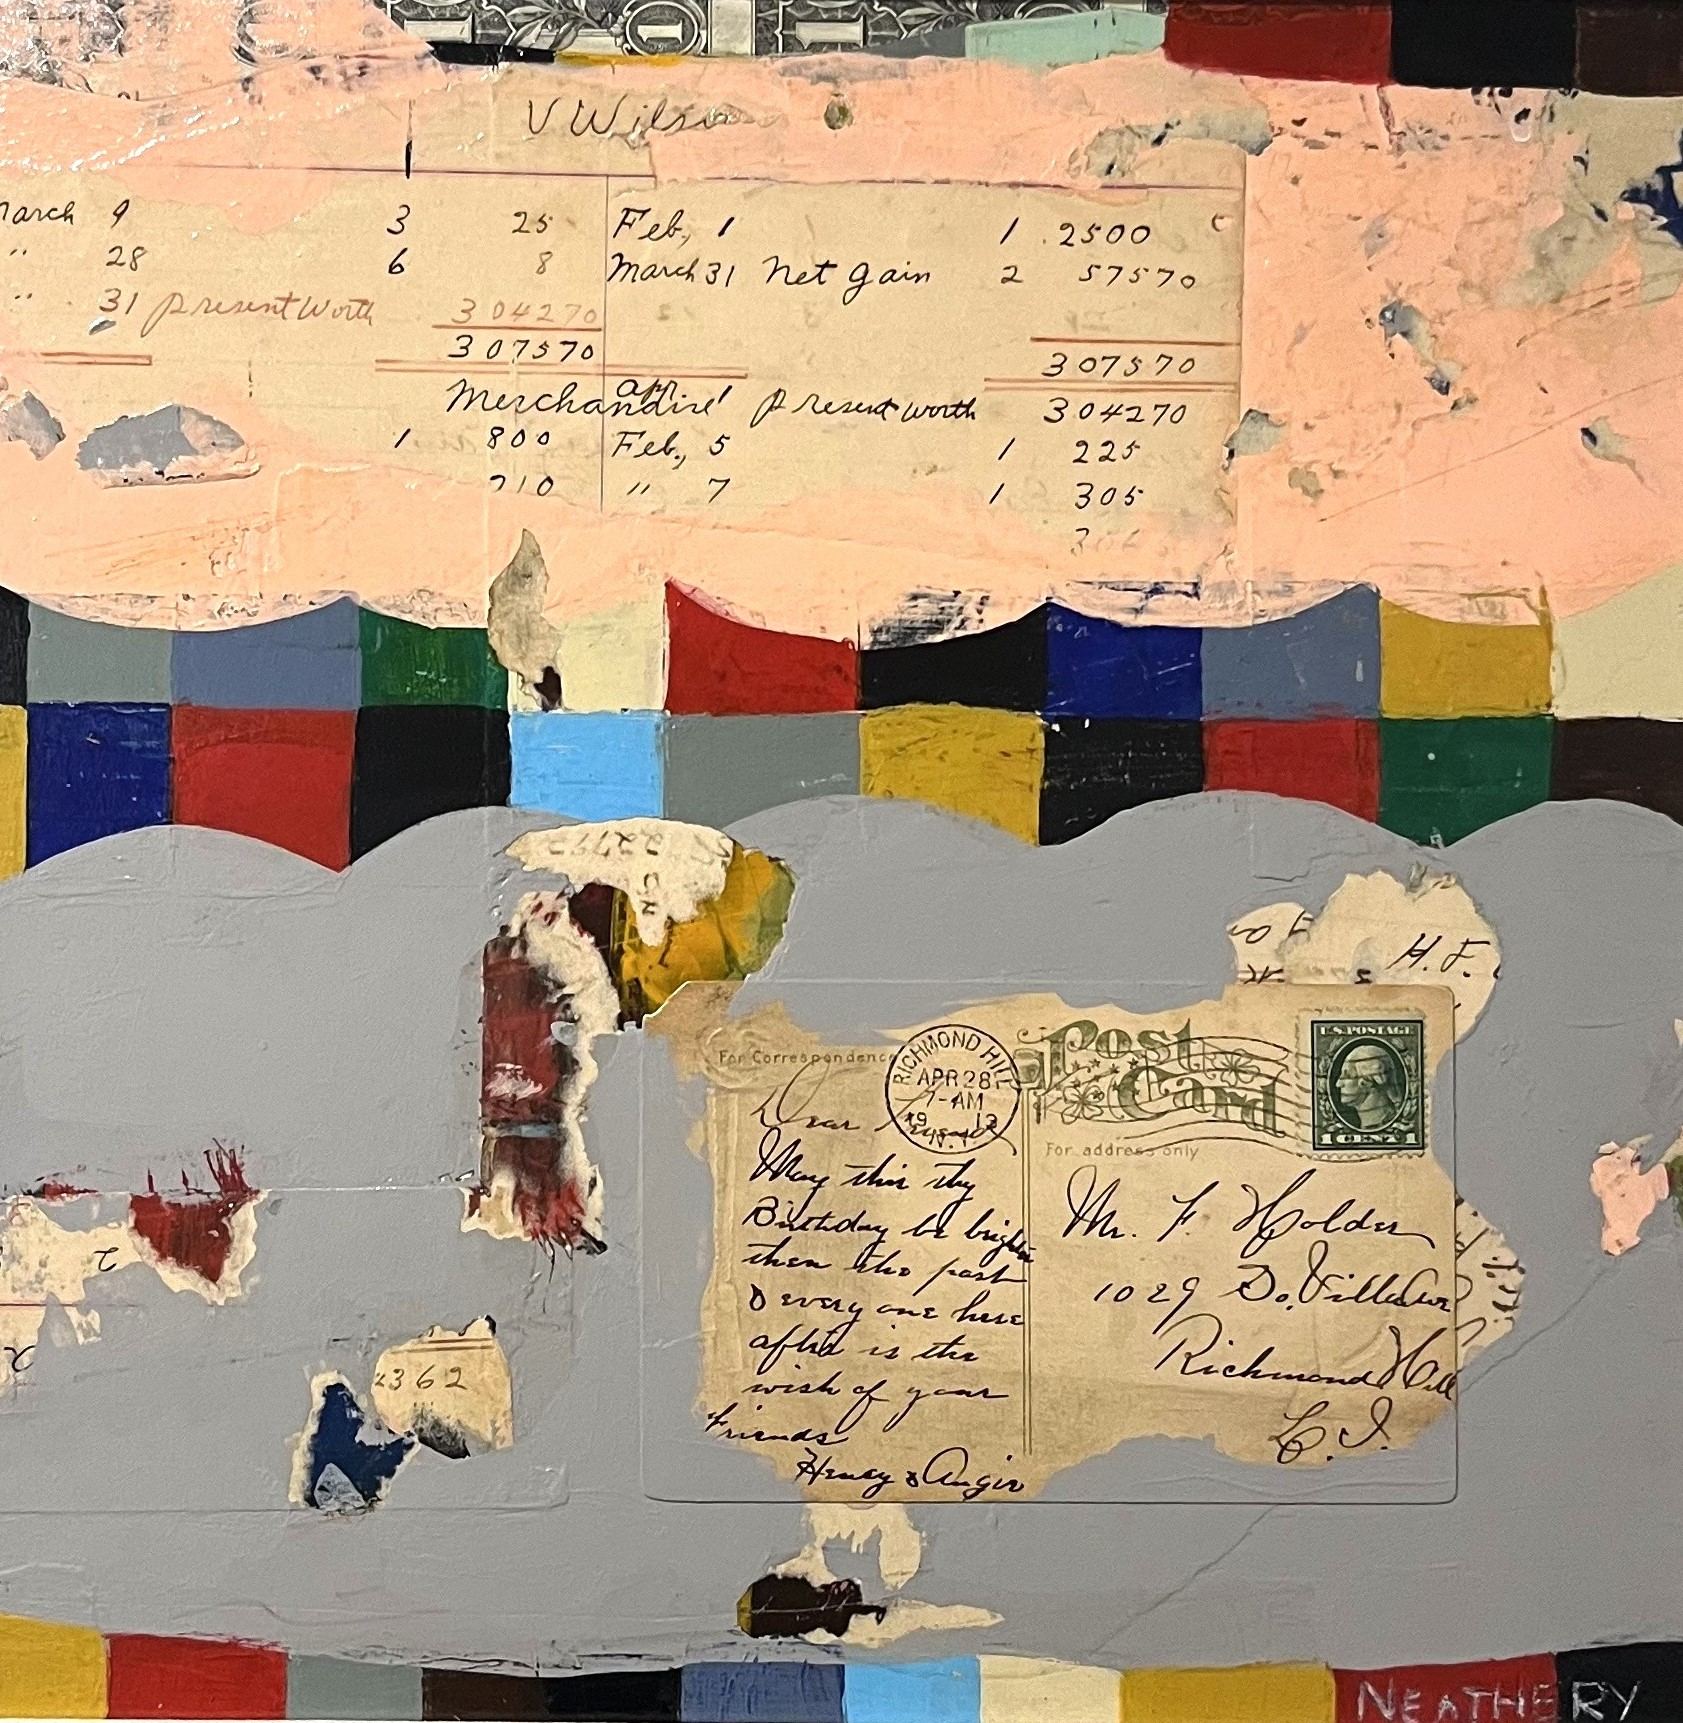 V Wilson
March 9 3 25 Feb, 1 1 2500
" 28 6 8 March 31 net gain 2 57570
" 31 present worth 304270
307570 307570
Merchandise Apr 1 present worth 304270
1 800 Feb, 5 1 225
710 " 7 1 305
H. F.
For Correspondence
RICHMOND HILL
APR 28
7-AM
1913
N.Y.
Post Card
U.S. POSTAGE
1 CENT 1
For address only
Dear Friend
May this thy
Birthday be brighter
then the past
& every one here
after is the
wish of your
Friends
Henry & Angie
Mr. F. Holder
1029 Ave
Richmond Hill
L. I.
2362
NEATHERY